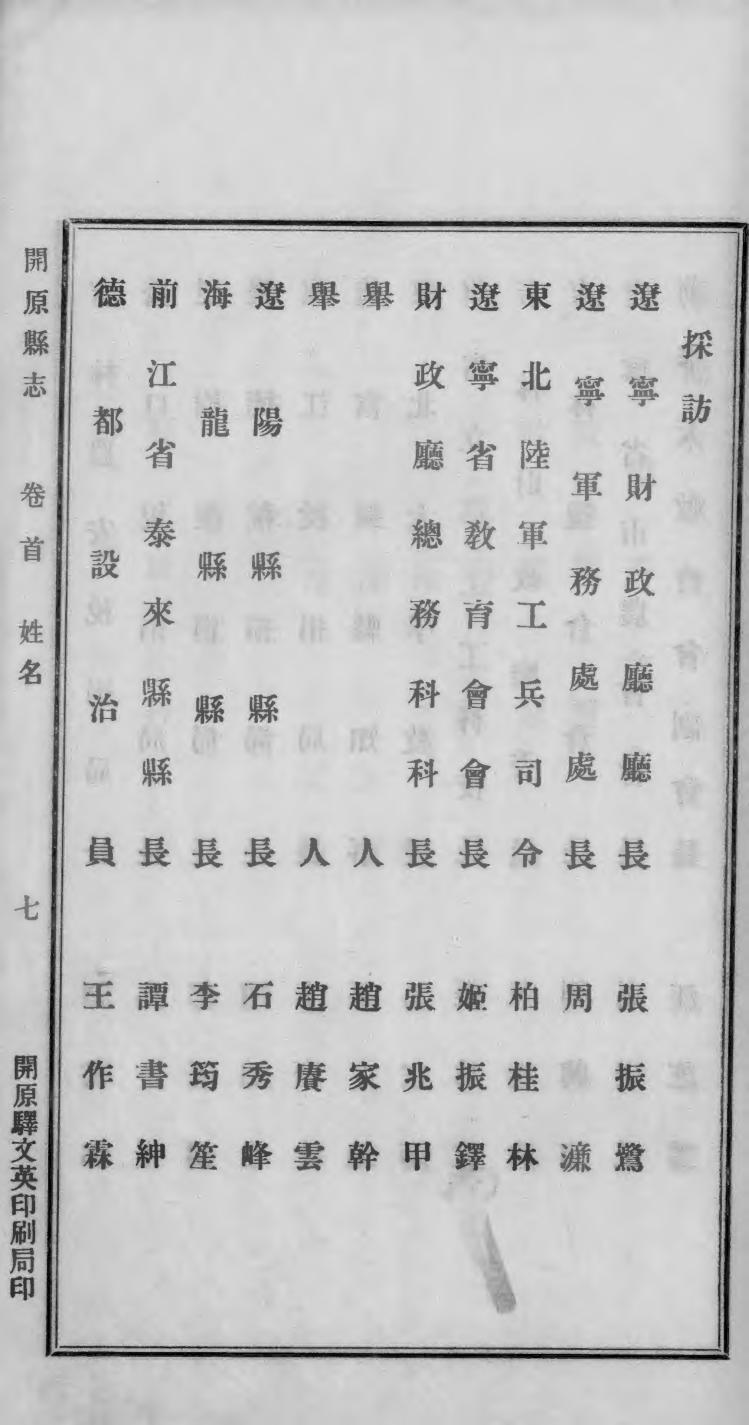 採訪
遼寧財政廳廳長 張振鷺
遼寧軍務處處長 周濂
東北陸軍工兵司令 柏桂林
遼寧省教育會會長 姬振鐸
財政廳總務科科長 張兆甲
舉人 趙家幹
舉人 趙賡雲
遼陽縣縣長 石秀峰
海龍縣縣長 李筠笙
前江省泰來縣縣長 譚書紳
德都設治員 王作霖
開原縣志 卷首 姓名 七 開原驛文英印刷局印